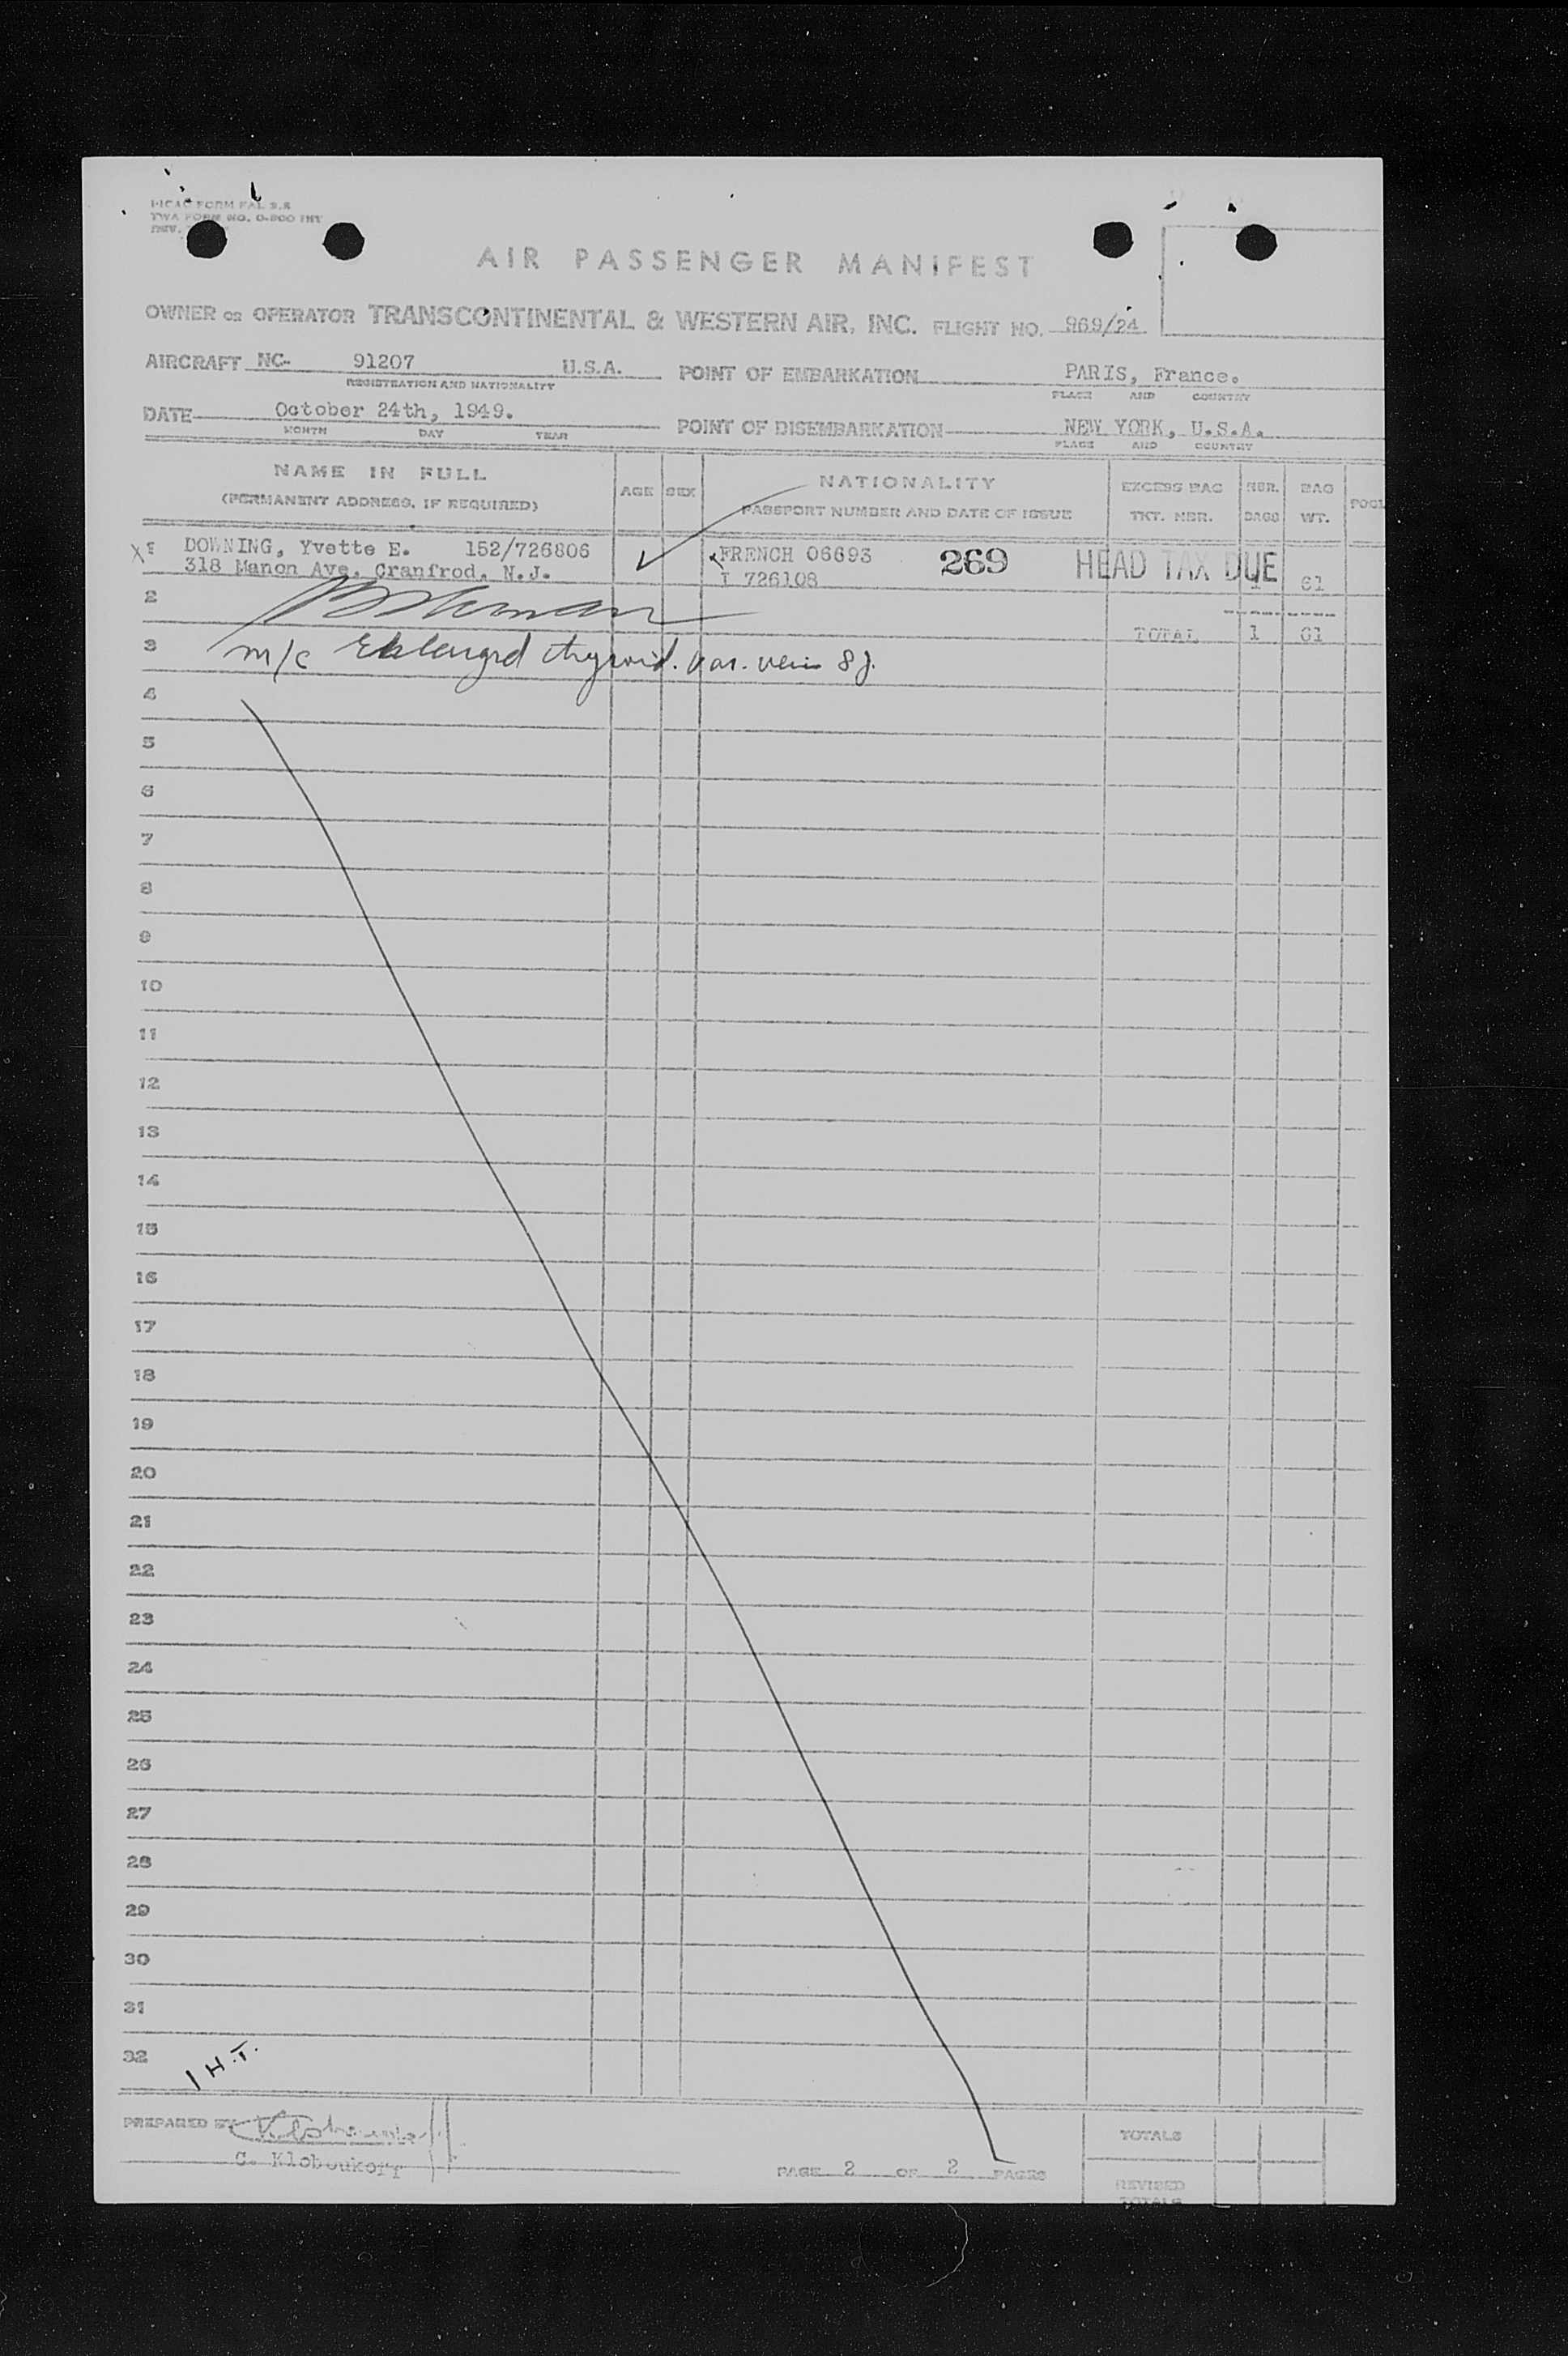 AIR PASSENGER MANIFEST
OWNER OR OPERATOR TRANSCONTINENTAL & WESTERN AIR, INC. FLIGHT NO. 969/24
AIRCRAFT NC- 91207 U.S.A. POINT OF EMBARKATION PARIS, France.
REGISTRATION AND NATIONALITY PLACE AND COUNTRY
DATE October 24th, 1949. POINT OF DISEMBARKATION NEW YORK, U.S.A.
MONTH DAY YEAR PLACE AND COUNTRY
NAME IN FULL AGE SEX NATIONALITY EXCESS BAG NBR. BAG
(PERMANENT ADDRESS, IF REQUIRED) PASSPORT NUMBER AND DATE OF ISSUE TKT. NBR. BAGS WT.
X 1 DOWNING, Yvette E. 152/726806 FRENCH 06693 269 HEAD TAX DUE
318 Manon Ave. Cranfrod, N.J. I 726108 1 61
2 TOTAL 1 61
3 m/c Enlarged thyroid. var. vein
4
5
6
7
8
9
10
11
12
13
14
15
16
17
18
19
20
21
22
23
24
25
26
27
28
29
30
31
32
1 H.T.
PREPARED BY TOTALS
C. Kloboukoff
PAGE 2 OF 2 PAGES
REVISED
TOTALS